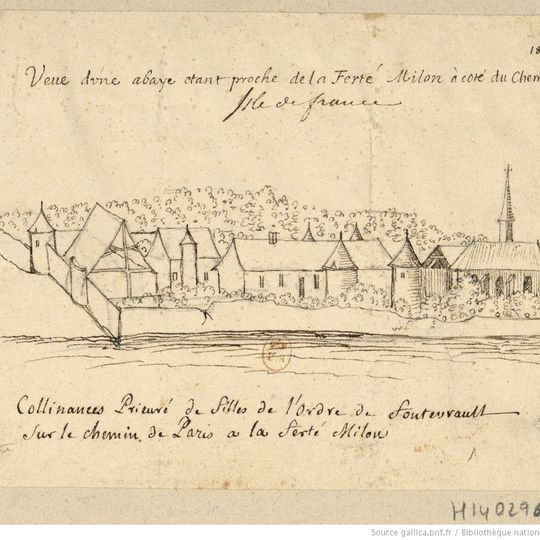 18
Veue d'vne abaye etant proche de la Ferté Milon à coté du Chem
Isle de france
Collinances Prieuré de filles de l'Ordre de fontevrault
sur le chemin de Paris a la ferté Milon
H140296
Source gallica.bnf.fr / Bibliothèque nation